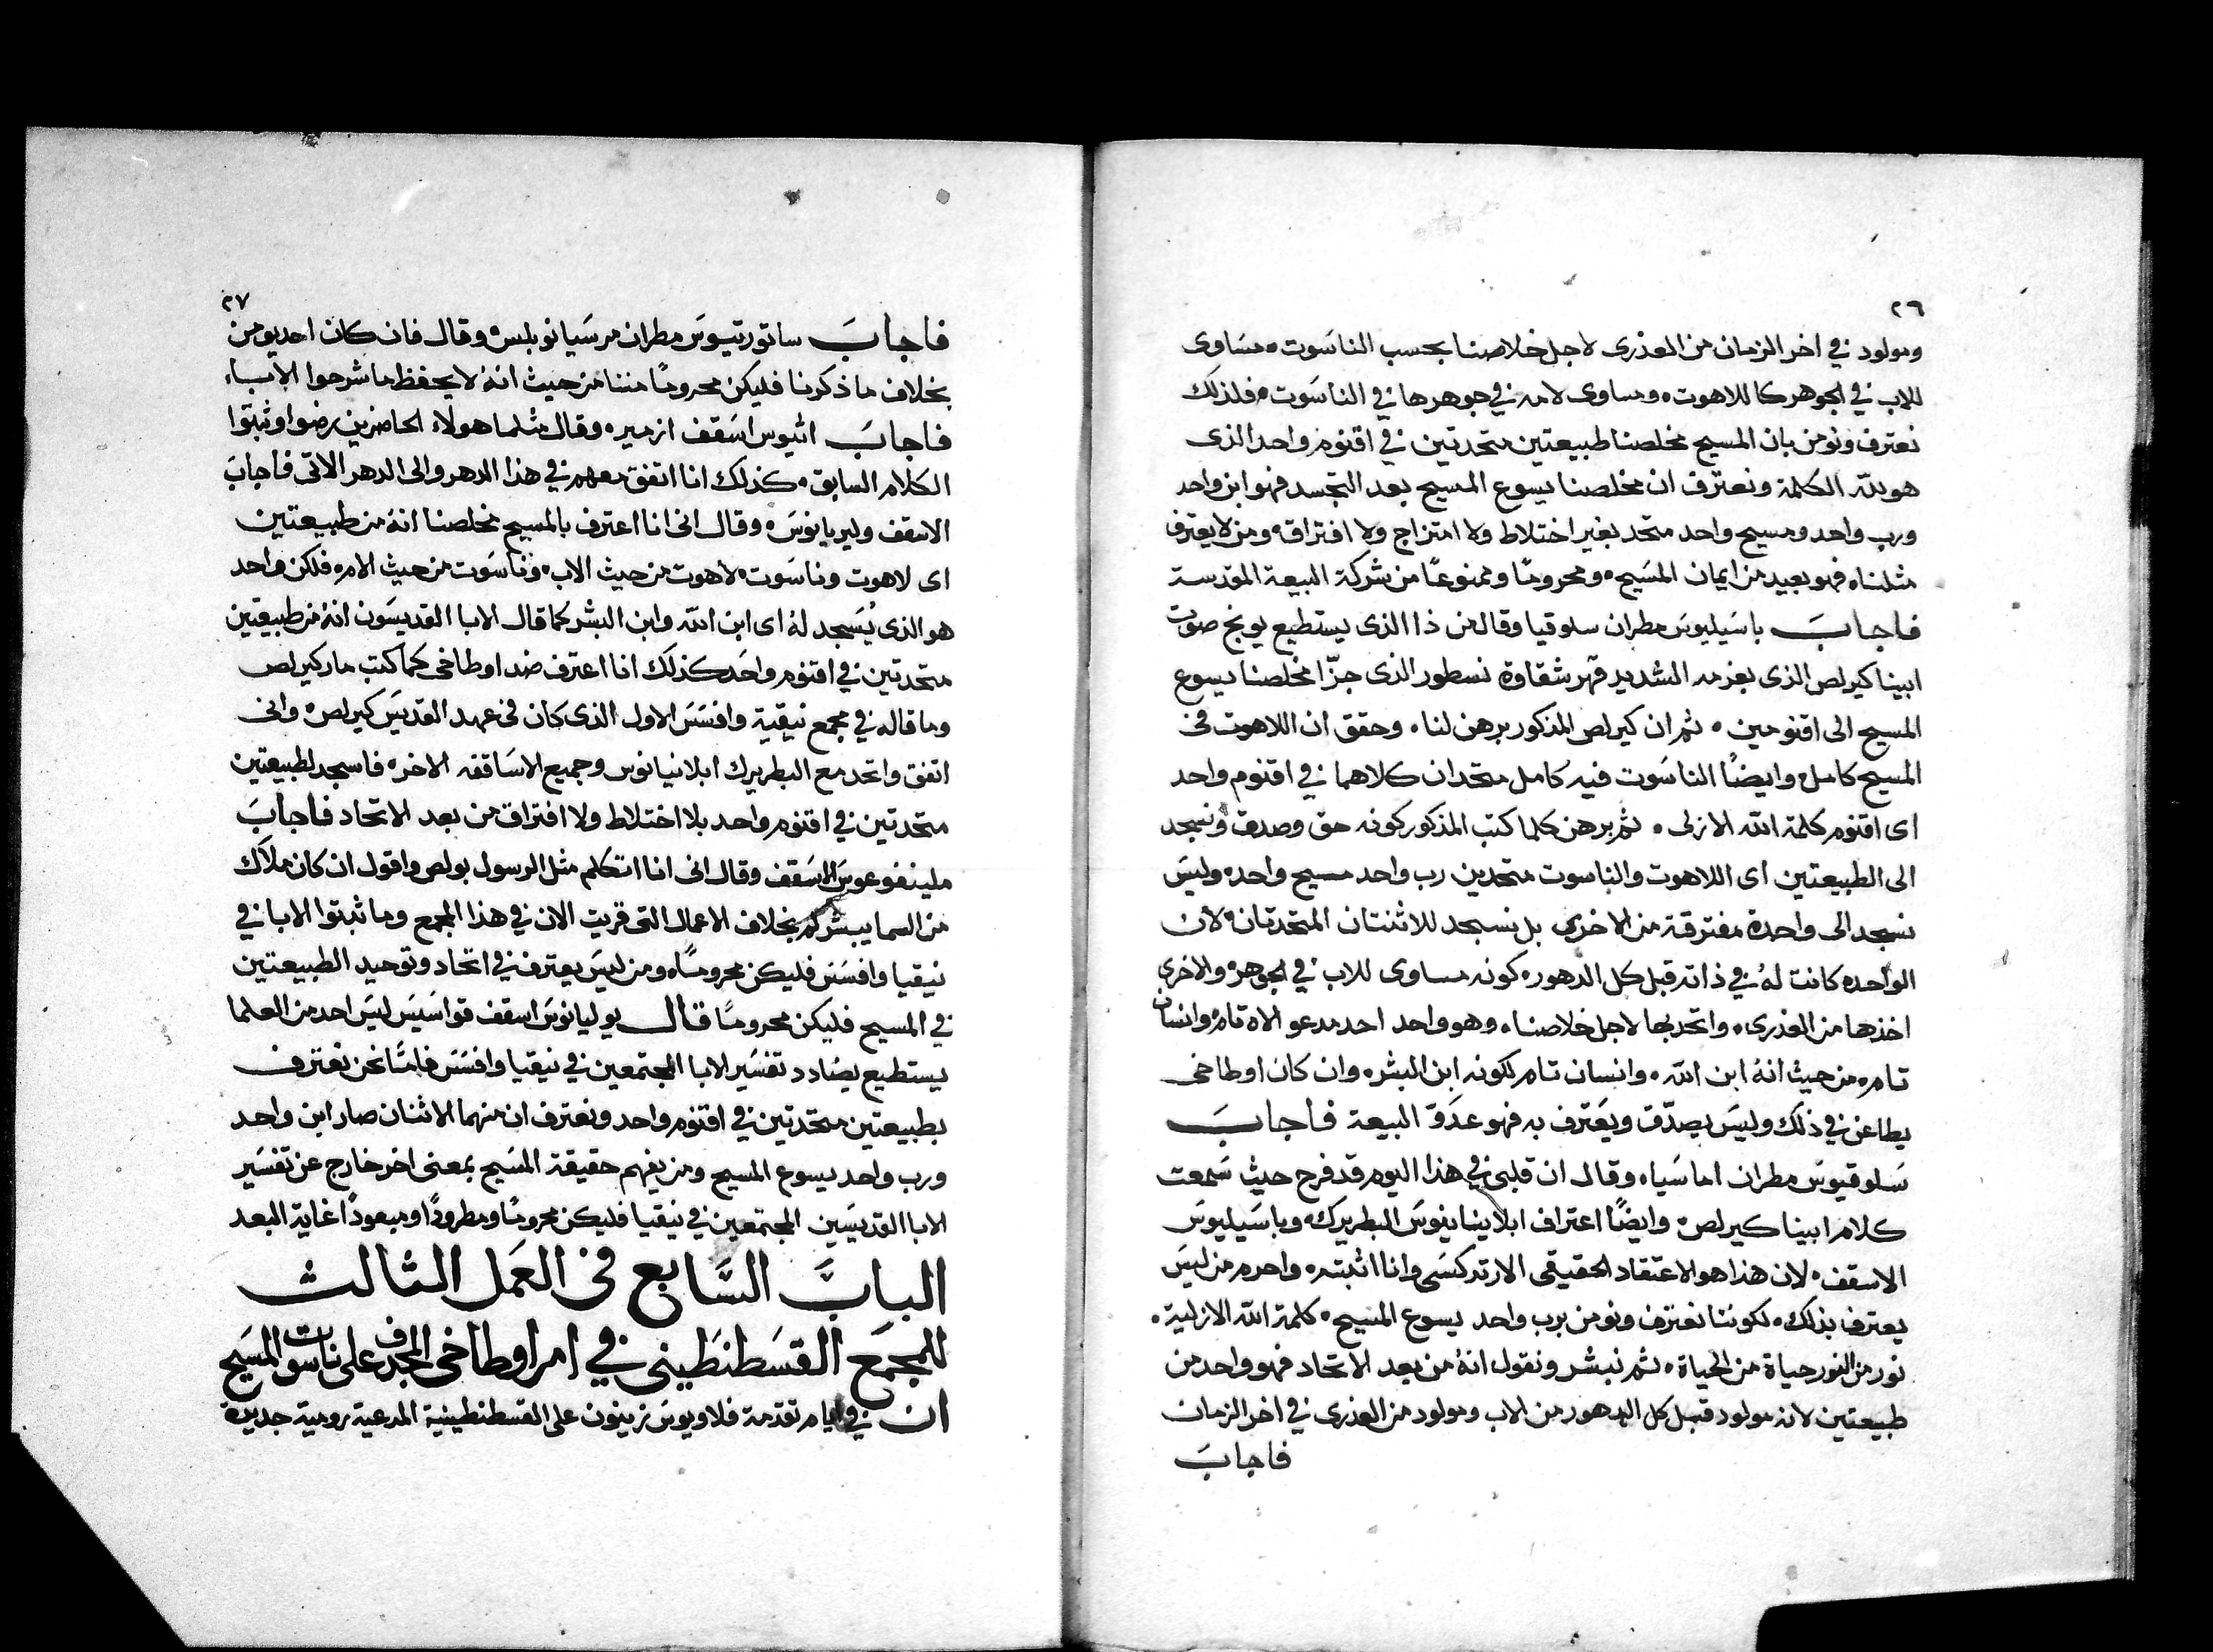 ٢٦
ومولود في اخر الزمان من العذرى لاجل خلاصنا بحسب الناسَوت، مسَاوى
للاب في الجوهر كاللاهوت، ومساوى لامه في جوهرها في الناسَوت، فلذلك
نعترف ونومن بان المسيح مخلصنا طبيعتين متحدتين في اقنوم واحد الذى
هو لله الكلمة ونعترف ان مخلصنا يسوع المسيح بعد التجسد فهو ابن واحد
ورب واحد ومسيح واحد متحد بغير اختلاط ولا امتزاج ولا افتراق، ومن لا يعترف
مثلنا، فهو بعيد من ايمان المسَيح، ومحرومًا وممنوعًا من شركة البيعة المقدسة
فاجابَ باسَيليوسَ مطران سلوقيا وقال من ذا الذى يستطيع يوبخ صوت
ابينا كيرلص الذى بعزمه الشديد قهر شقاوة نسطور الذى جزّا مخلصنا يسوع
المسيح الى اقنومين، ثم ان كيرلص المذكور برهن لنا، وحقق ان اللاهوت في
المسيح كامل، وايضًا الناسَوت فيه كامل متحدان كلاهما في اقنوم واحد
اى اقنوم كلمة الله الازلى، ثم برهن كلما كتب المذكور كونه حق وصدق ونسجد
الى الطبيعتين اى اللاهوت والناسوت متحدين رب واحد مسيح واحد، وليسَ
نسجد الى واحدة مفترقة من الاخرى بل نسجد للاثنتان المتحدتان، لان
الواحده كانت لهُ في ذاته قبل كل الدهور، كونه مساوى للاب في الجوهر، والاخرى
اخذها من العذرى، واتحد بها لاجل خلاصنا، وهو واحد احد مدعو الاه تام، وانسان
تام، من حيث انهُ ابن الله، وانسان تام لكونه ابن البشر، وان كان اوطاخى
يطاعن في ذلك وليسَ يصدّق ويَعترف به فهو عدَوّ البيعة فاجابَ
سَلوقيوسَ مطران اماسَيا، وقال ان قلبى في هذا اليوم قد فرح حيث سَمعت
كلام ابينا كيرلص، وايضًا اعتراف ابلاينيانوسَ البطريرك، وباسَيليوسَ
الاسقف، لان هذا هو الاعتقاد الحقيقى الارتدكسَى وانا اثبته، واحرم من ليسَ
يعترف بذلك، لكوننا نعترف ونومن برب واحد يسوع المسيح، كلمة الله الازلية،
نور من النور حياة من الحياة، ثم نبشر ونقول انهُ من بعد الاتحاد فهو واحد من
طبيعتين لانه مولود قبل كل الدهور من الاب ومولود من العذرى في اخر الزمان
فاجابَ
٢٧
فاجابَ ساتورتيوسَ مطران مرسَيانوبلس، وقال فان كان احد يومن
بخلاف ما ذكرنا فليكن محرومًا مننا من حيث انهُ لا يحفظ ما شرحوا الاباء،
فاجابَ اثيوس اسَقف ازمير، وقال مثلما هولاء الحاضرين رضوا وثبتوا
الكلام السابق، كذلك انا اتفق معهم في هذا الدهر والى الدهر الاتى فاجابَ
الاسقف وليريانوسَ، وقال انى انا اعترف بالمسيح مخلصنا انهُ من طبيعتين
اى لاهوت وناسَوت، لاهوت من حيث الاب، وناسَوت من حيث الام، فلكن واحد
هو الذى يُسَجد لهُ اى ابن الله وابن البشر كما قال الابا القديسَون انهُ من طبيعتين
متحدتين في اقنوم واحَد كذلك انا اعترف ضد اوطاخى كما كتب مار كيرلص
وما قاله في مجمع نيقية وافسَسَ الاول الذى كان في عهد القديسَ كيرلص، وانى
اتفق واتحد مع البطريرك ابلانيانوس وجميع الاسَاقفه الاخر، فاسجد لطبيعتين
متحدتين في اقنوم واحد بلا اختلاط ولا افتراق من بعد الاتحاد فاجابَ
ملينفوعوسَ الاسَقف وقال انى انا اتكلم مثل الرسول بولص واقول ان كان ملاَك
من السما يبشركم بخلاف الاعمال التى قريت الان في هذا المجمع وما ثبتوا الابا في
نيقيا وافسَس فليكن محرومًا، ومن ليسَ يعترف في اتحاد وتوحيد الطبيعتين
في المسيح فليكن محرومًا قال يوليانوسَ اسقف قواسَيسَ ليسَ احد من العلما
يستطيع يضادد تفسَير الابا المجتمعين في نيقيا وافسَسَ فامّا نحن نعترف
بطبيعتين متحَدتين في اقنوم واحد ونعترف ان منهما الاثنان صار ابن واحد
ورب واحد يسوع المسيح ومن يفهم حقيقة المسَيح بمعنى اخر خارج عن تفسَير
الابا القديسَين المجتمعين في نيقيا فليكن محرومًا ومطرودًا ومبعودًا غاية البعد
البابَ السَّابع في العَمل الثالث
للمجمَع القسَطنطَينى في امر اوطاخى المجدف على ناسوت المسَيح
ان في ايام تقدمة فلاويوسَ زينون على القسطنطينية المدعية رومية جديدة